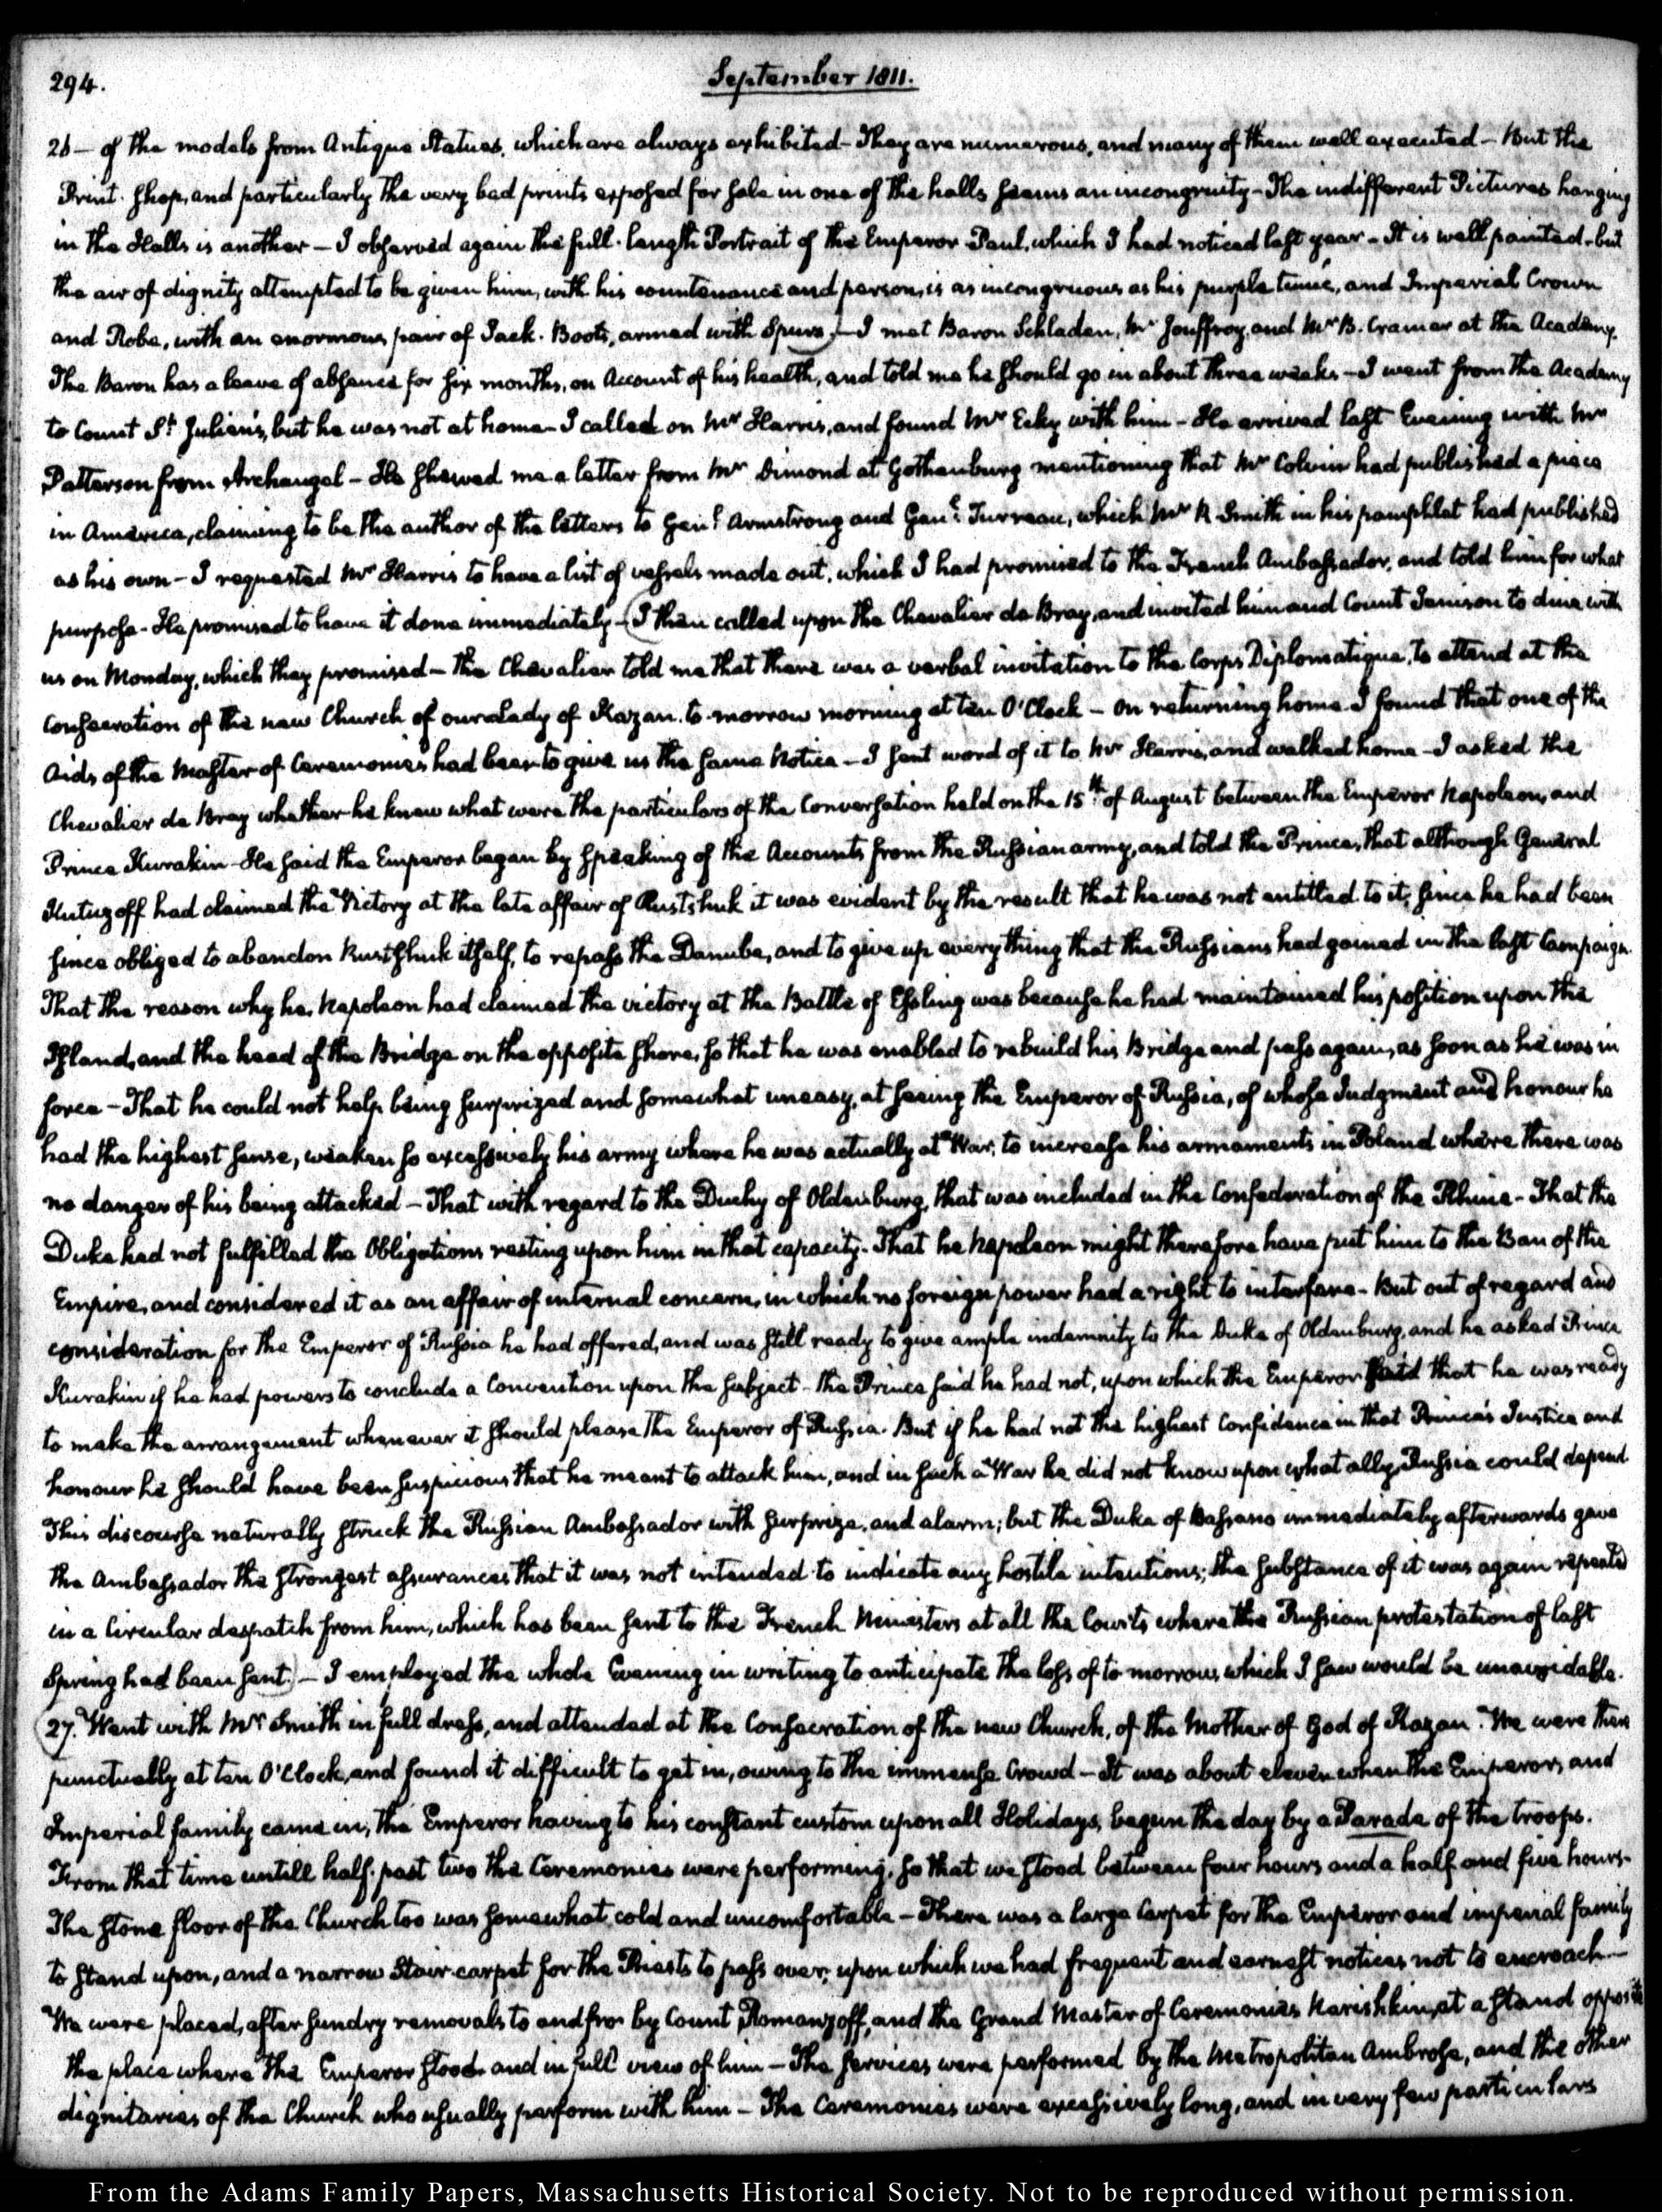 294.
September 1811.
26 — of the models from Antique Statues, which are always exhibited - They are numerous, and many of them well executed - But the
Print-shop, and particularly the very bad prints exposed for sale in one of the halls seems an incongruity - The indifferent Pictures hanging
in the Halls is another — I observed again the full-length Portrait of the Emperor Paul, which I had noticed last year - It is well painted - but
the air of dignity attempted to be given him, with his countenance and person, is as incongruous as his purple tunic, and Imperial Crown
and Robe, with an enormous pair of Jack-Boots, armed with Spurs) - I met Baron Schladen, Mr Jouffroy, and Mr B. Cramer at the Academy.
The Baron has a leave of absence for six months, on Account of his health, and told me he should go in about three weeks - I went from the Academy
to Count St Julien's, but he was not at home - I called on Mr Harris, and found Mr Ecky with him - He arrived last Evening with Mr
Patterson from Archangel - He shewed me a letter from Mr Dimond at Gothenburg mentioning that Mr Colvin had published a piece
in America, claiming to be the author of the letters to Genl Armstrong and Genl Turreau, which Mr R Smith in his pamphlet had published
as his own - I requested Mr Harris to have a list of vessels made out, which I had promised to the French Ambassador, and told him for what
purpose - He promised to have it done immediately - (I then called upon the Chevalier de Bray, and invited him and Count Jenison to dine with
us on Monday, which they promised - the Chevalier told me that there was a verbal invitation to the Corps Diplomatique, to attend at the
Consecration of the new Church of our Lady of Kazan, to-morrow morning at ten O'Clock - On returning home I found that one of the
Aids of the Master of Ceremonies had been to give us the same Notice - I sent word of it to Mr Harris, and walked home - I asked the
Chevalier de Bray whether he knew what were the particulars of the Conversation held on the 15th of August between the Emperor Napoleon, and
Prince Kurakin - He said the Emperor began by speaking of the Accounts from the Russian army, and told the Prince, that although General
Kutuzoff had claimed the Victory at the late affair of Rustshuk it was evident by the result that he was not entitled to it, since he had been
since obliged to abandon Rustshuk itself, to repass the Danube, and to give up every thing that the Russians had gained in the last Campaign.
That the reason why he, Napoleon had claimed the victory at the Battle of Essling was because he had maintained his position upon the
Island, and the head of the Bridge on the opposite shore, so that he was enabled to rebuild his Bridge and pass again, as soon as he was in
force - That he could not help being surprized and somewhat uneasy, at seeing the Emperor of Russia, of whose Judgment and honour he
had the highest sense, weaken so excessively his army where he was actually at War, to increase his armaments in Poland where there was
no danger of his being attacked - That with regard to the Duchy of Oldenburg, that was included in the Confederation of the Rhine - That the
Duke had not fulfilled the Obligations resting upon him in that capacity - That he Napoleon might therefore have put him to the Ban of the
Empire, and considered it as an affair of internal concern, in which no foreign power had a right to interfere - But out of regard and
consideration for the Emperor of Russia he had offered, and was still ready to give ample indemnity to the Duke of Oldenburg, and he asked Prince
Kurakin if he had powers to conclude a Convention upon the subject - the Prince said he had not, upon which the Emperor said that he was ready
to make the arrangement whenever it should please the Emperor of Russia. But if he had not the highest Confidence in that Prince's Justice and
honour he should have been suspicious that he meant to attack him, and in such a War he did not know upon what ally Russia could depend
This discourse naturally struck the Russian Ambassador with surprize, and alarm; but the Duke of Bassano immediately afterwards gave
the Ambassador the strongest assurances that it was not intended to indicate any hostile intentions; the substance of it was again repeated
in a Circular despatch from him, which has been sent to the French Ministers at all the Courts where the Russian protestation of last
Spring had been sent.) - I employed the whole Evening in writing to anticipate the loss of to morrow, which I saw would be unavoidable.
(27. Went with Mr Smith in full dress, and attended at the Consecration of the new Church, of the Mother of God of Kazan. We were there
punctually at ten O'Clock, and found it difficult to get in, owing to the immense Crowd - It was about eleven when the Emperor, and
Imperial family came in, the Emperor having to his constant custom upon all Holidays, begun the day by a Parade of the troops.
From that time untill half-past two the Ceremonies were performing, so that we stood between four hours and a half and five hours -
The stone floor of the Church too was somewhat cold and uncomfortable - There was a large Carpet for the Emperor and imperial family
to stand upon, and a narrow Stair-carpet for the Priests to pass over, upon which we had frequent and earnest notices not to encroach -
We were placed, after sundry removals to and fro by Count Romanzoff, and the Grand Master of Ceremonies Narishkin, at a stand opposite
the place where the Emperor stood and in full view of him - The services were performed by the Metropolitan Ambrose, and the other
dignitaries of the Church who usually perform with him - The Ceremonies were excessively long, and in very few particulars
From the Adams Family Papers, Massachusetts Historical Society. Not to be reproduced without permission.